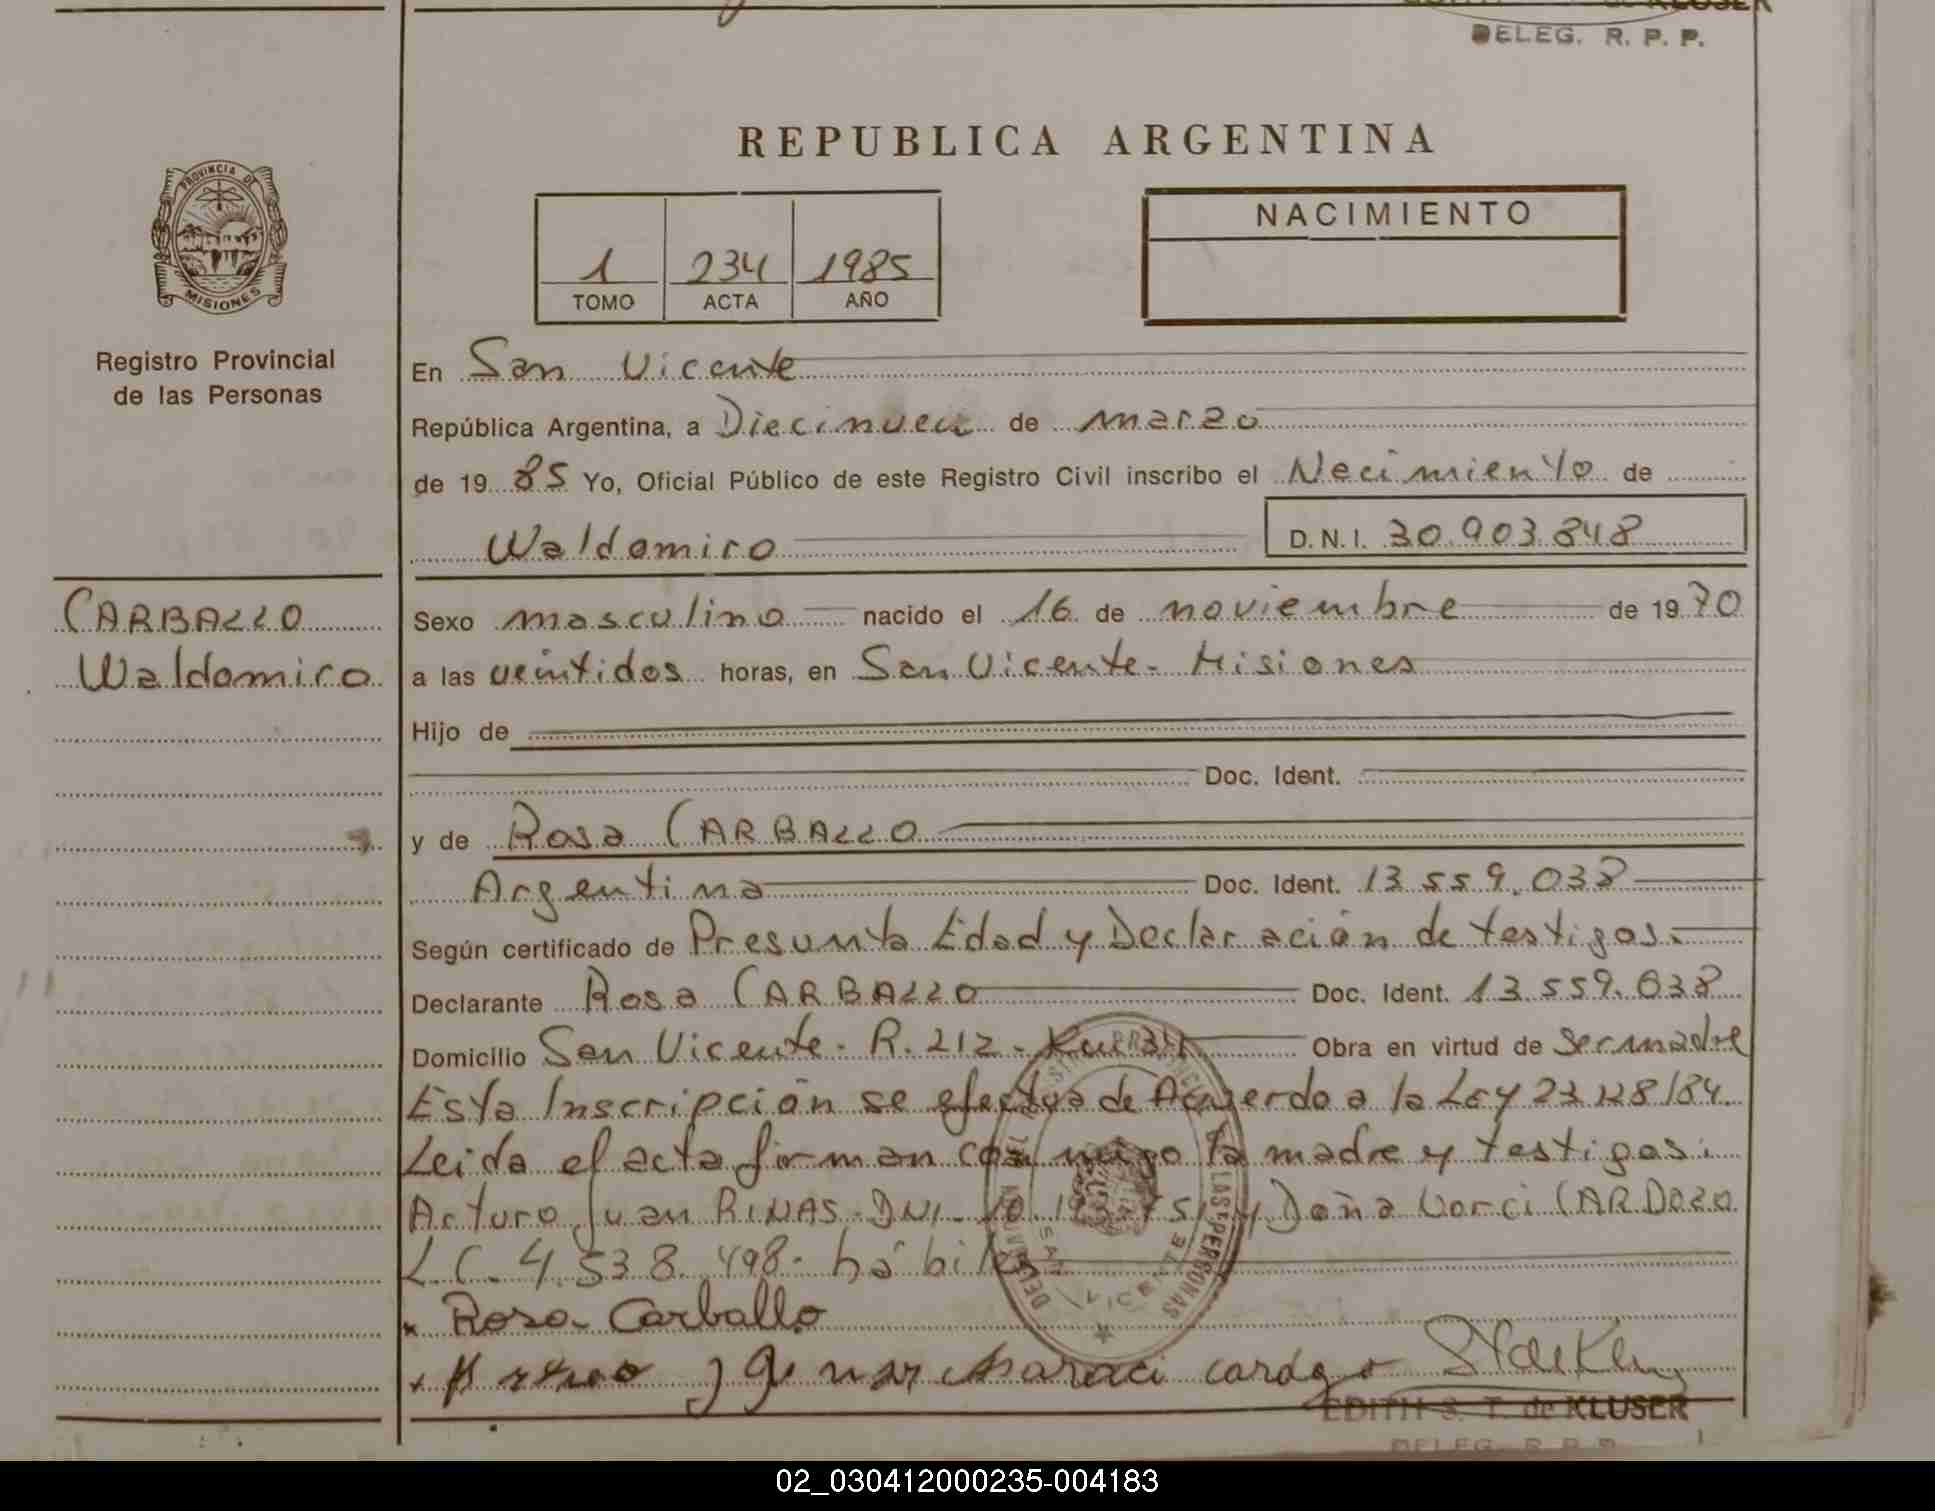 KLUSER
DELEG. R. P. P.
REPUBLICA ARGENTINA
PROVINCIA DE
MISIONES
Registro Provincial
de las Personas
1 234 1985
TOMO ACTA AÑO
NACIMIENTO
En San Vicente
República Argentina, a Diecinueve de marzo
de 19 85 Yo, Oficial Público de este Registro Civil inscribo el Nacimiento de
Waldomiro D.N.I. 30.903.848
CARBALLO
Waldomiro
Sexo masculino nacido el 16 de noviembre de 19 70
a las veintidos horas, en San Vicente - Misiones
Hijo de
Doc. Ident.
y de Rosa CARBALLO
Argentina Doc. Ident. 13.559.038
Según certificado de Presunta Edad y Declaración de testigos.-
Declarante Rosa CARBALLO Doc. Ident. 13.559.038
Domicilio San Vicente - R. 212 - Obra en virtud de Ser madre
Esta Inscripción se efectua de Acuerdo a la Ley 23.128/84.
Leida el acta firman con migo la madre y testigos:
Arturo Juan RINAS - DNI - y Doña Vorci CARDOZO
L.C. 4.538.498 - hábiles
x Rosa Carballo
EDITH S. T. de KLUSER
DELEG. R. P. P.
02_030412000235-004183